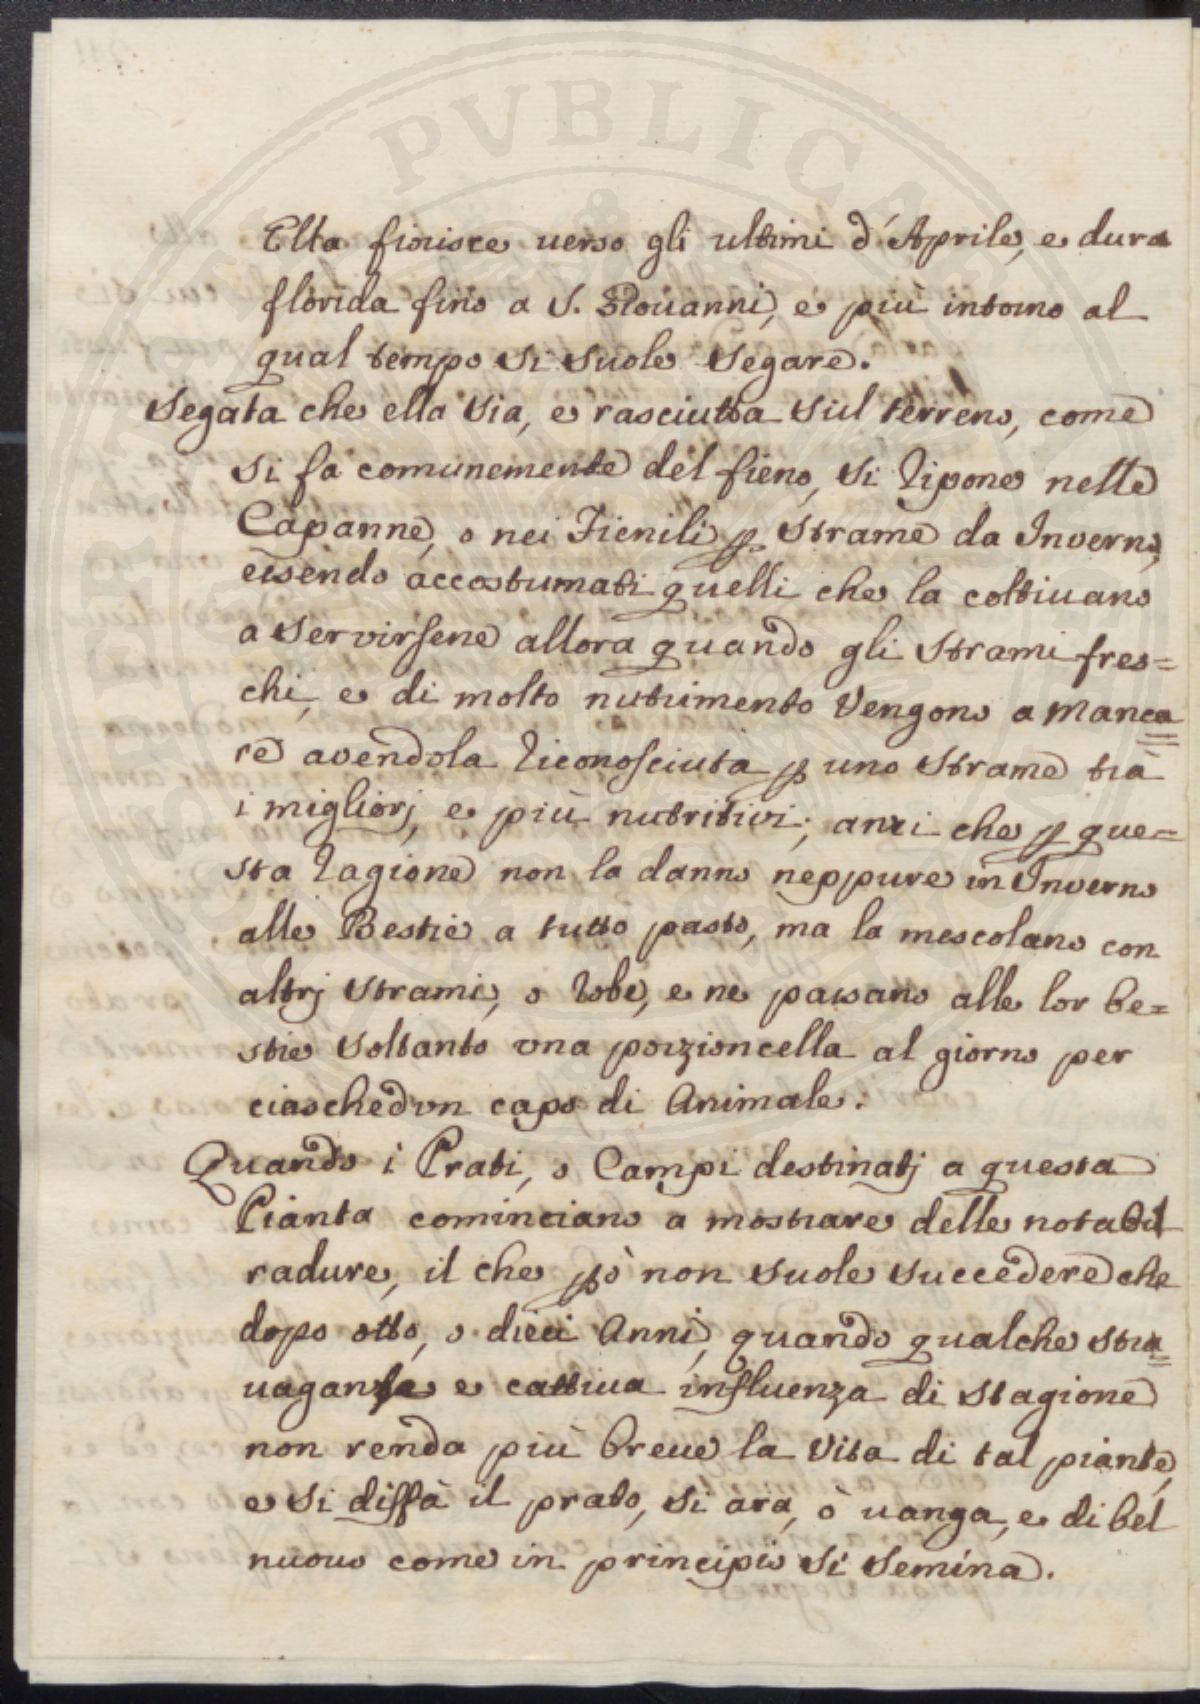 Ella fiorisce verso gli ultimi d'Aprile, e dura
florida fino a S. Giouanni, e più intorno al
qual tempo si suole segare.
Segata che ella sia, e rasciutta sul terreno, come
si fa comunemente del fieno, si ripone nelle
Capanne, o nei Fienili p Strame da Inverno,
essendo accostumati quelli che la coltiuano
a servirsene allora quando gli Strami fres=
chi, e di molto nutrimento vengono a manca
re avendola riconosciuta p uno Strame tra
i migliorj, e più nutritivi; anzi che p que=
sta ragione non la danno neppure in Inverno
alle Bestie a tutto pasto, ma la mescolano con
altrj Strami, o robe, e ne passano alle lor be=
stie soltanto vna porzioncella al giorno per
ciaschedvn capo di Animale.
Quando i Prati, o Campi destinatj a questa
Pianta cominciano a mostrare delle notabil
radure, il che pò non suole succedere che
dopo otto, o dieci Anni, quando qualche stra=
uaganza e cattiua influenza di Stagione
non renda più breue la Vita di tal piante,
e si diffà il prato, si ara, ò uanga, e di bel
nuouo come in principio si semina.
PVBLICA